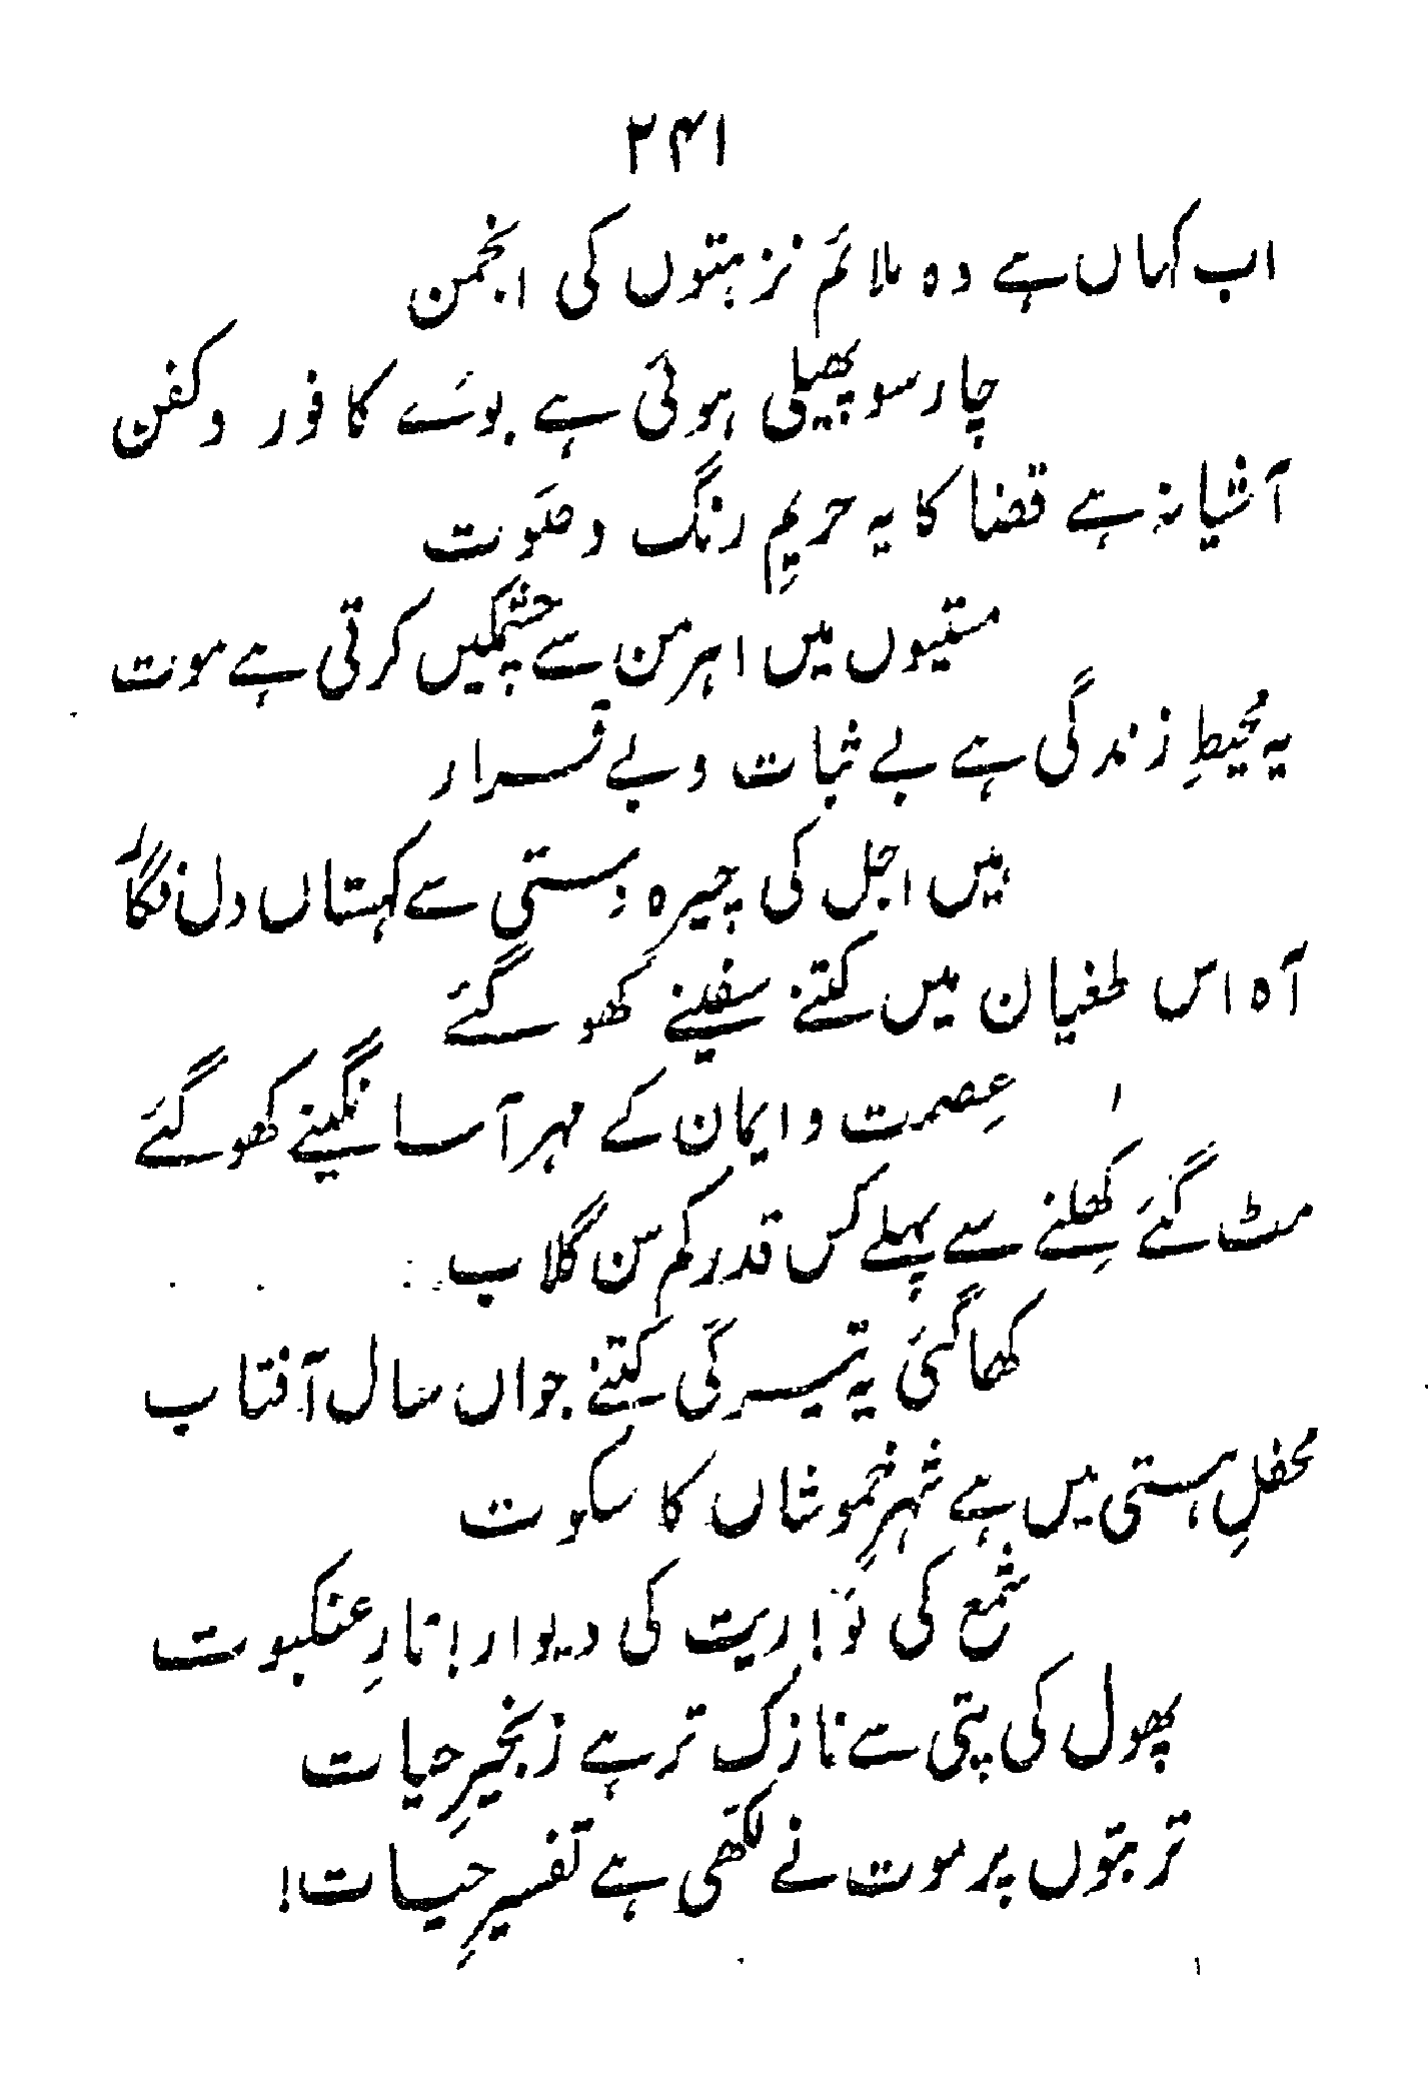 ۲۴۱
اب کہاں ہے وہ ملائم نزہتوں کی انجمن
چار سو پھیلی ہوئی ہے بوئے کافور و کفن
آشیانہ ہے قضا کا یہ حریمِ رنگ و صَوت
مستیوں میں اہرمن سے چشمکیں کرتی ہے موت
یہ مُحیطِ زندگی ہے بے ثبات و بے قرار
ہیں اجل کی چیرہ دستی سے کہستاں دل فگار
آہ اس طغیان میں کتنے سفینے کھو گئے
عِصمت و ایمان کے مہر آسا نگینے کھو گئے
مٹ گئے کِھلنے سے پہلے کس قدر کم سن گلاب
کھا گئی یہ تیرگی کتنے جواں سال آفتاب
محفلِ ہستی میں ہے شہرِ خموشاں کا سکوت
شمع کی لَو! ریت کی دیوار! تارِ عنکبوت
پھول کی پتی سے نازک تر ہے زنجیرِ حیات
تربتوں پر موت نے لکھی ہے تفسیرِ حیات!